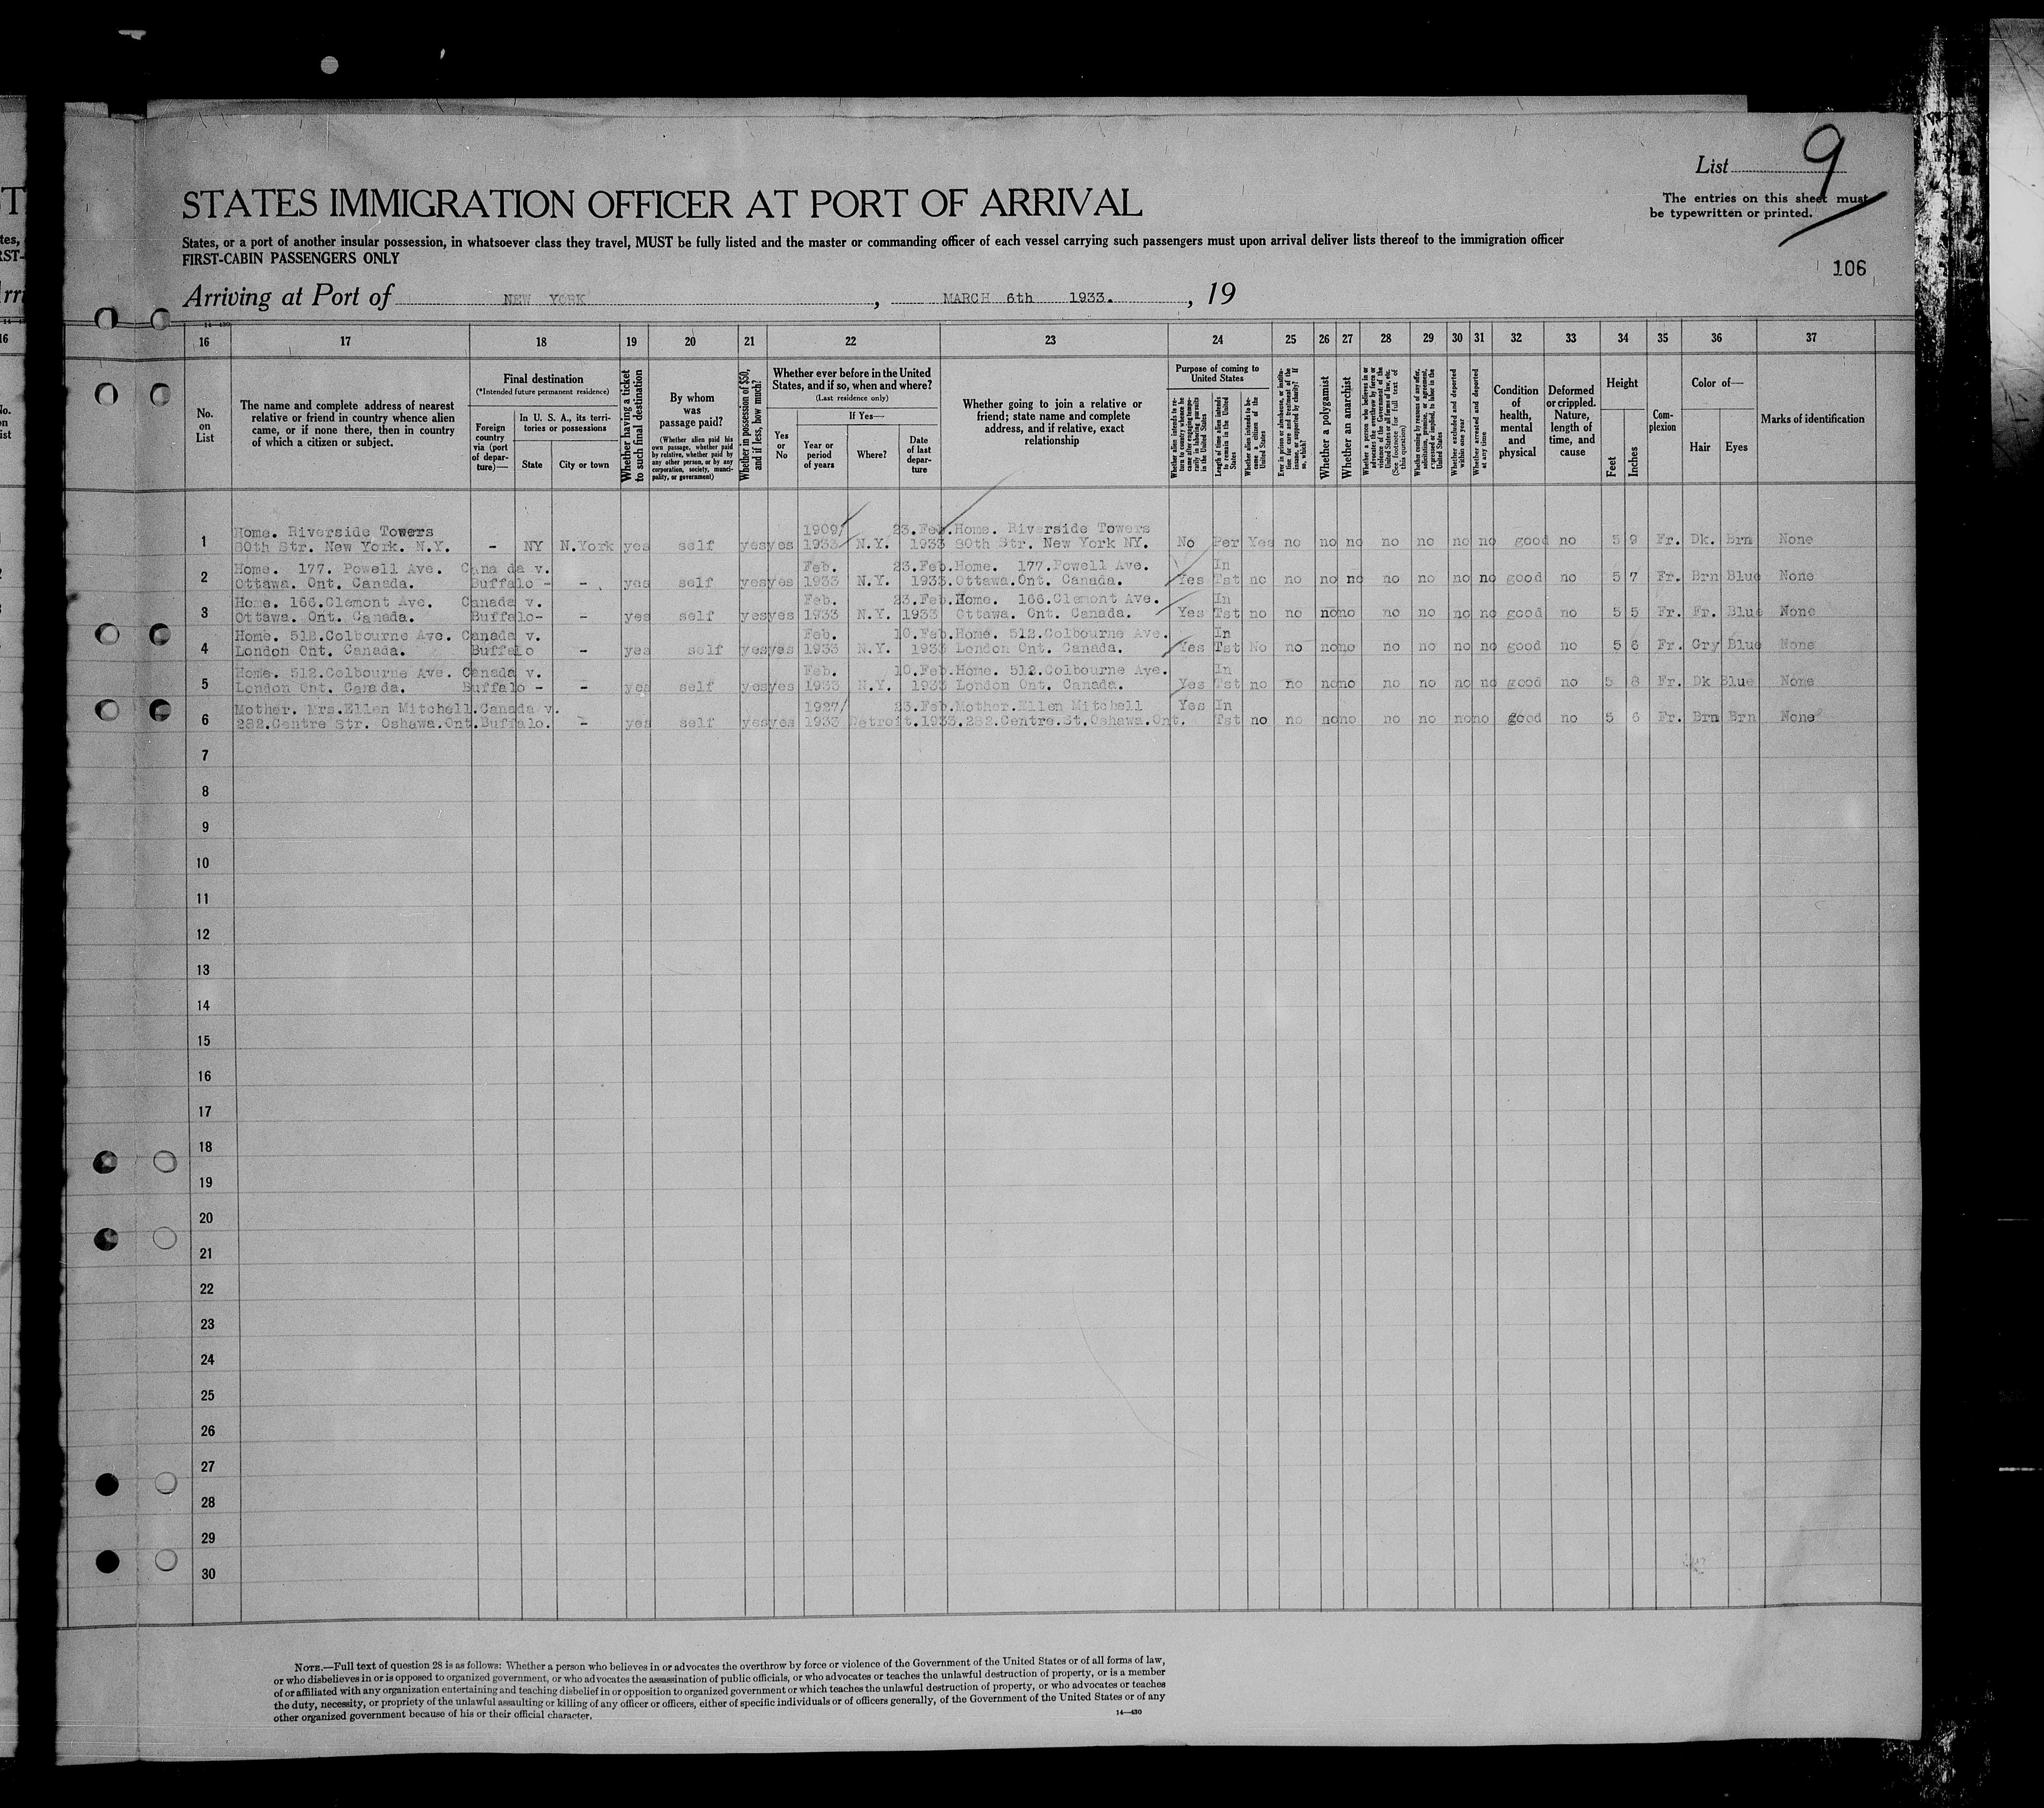 List 9
The entries on this sheet must
be typewritten or printed.
STATES IMMIGRATION OFFICER AT PORT OF ARRIVAL
States, or a port of another insular possession, in whatsoever class they travel, MUST be fully listed and the master or commanding officer of each vessel carrying such passengers must upon arrival deliver lists thereof to the immigration officer
FIRST-CABIN PASSENGERS ONLY
106
Arriving at Port of NEW YORK, MARCH 6th 1933., 19
14-430
16 17 18 19 20 21 22 23 24 25 26 27 28 29 30 31 32 33 34 35 36 37
No. on List
The name and complete address of nearest
relative or friend in country whence alien
came, or if none there, then in country
of which a citizen or subject.
Final destination
(*Intended future permanent residence)
Foreign country via (port of departure)—
In U. S. A., its territories or possessions
State
City or town
Whether having a ticket to such final destination
By whom was passage paid?
(Whether alien paid his own passage, whether paid by relative, whether paid by any other person, or by any corporation, society, municipality, or government)
Whether in possession of $50, and if less, how much?
Whether ever before in the United States, and if so, when and where?
(Last residence only)
Yes or No
If Yes—
Year or period of years
Where?
Date of last departure
Whether going to join a relative or
friend; state name and complete
address, and if relative, exact
relationship
Purpose of coming to United States
Whether alien intends to return to country whence he came after engaging temporarily in laboring pursuits in the United States
Length of time alien intends to remain in the United States
Whether alien intends to become a citizen of the United States
Ever in prison or almshouse, or institution for care and treatment of the insane, or supported by charity? If so, which?
Whether a polygamist
Whether an anarchist
Whether a person who believes in or advocates the overthrow by force or violence of the Government of the United States or all forms of law, etc. (See footnote for full text of this question)
Whether coming by reason of any offer, solicitation, promise, or agreement, expressed or implied, to labor in the United States
Whether excluded and deported within one year
Whether arrested and deported at any time
Condition of health, mental and physical
Deformed or crippled. Nature, length of time, and cause
Height
Feet
Inches
Complexion
Color of—
Hair
Eyes
Marks of identification
Home. Riverside Towers 1909/ 23.Feb.Home. Riverside Towers
1 80th Str. New York. N.Y. - NY N.York yes self yes yes 1933 N.Y. 1933 80th Str. New York NY. No Per Yes no no no no no no no good no 5 9 Fr. Dk. Brn None
Home. 177. Powell Ave. Canada v. Feb. 23.Feb.Home. 177.Powell Ave. In
2 Ottawa. Ont. Canada. Buffalo - - yes self yes yes 1933 N.Y. 1933.Ottawa.Ont. Canada. Yes Tst no no no no no no no no good no 5 7 Fr. Brn Blue None
Home. 166.Clemont Ave. Canada v. Feb. 23.Feb.Home. 166.Clemont Ave. In
3 Ottawa. Ont. Canada. Buffalo- - yes self yes yes 1933 N.Y. 1933 Ottawa. Ont. Canada. Yes Tst no no no no no no no no good no 5 5 Fr. Fr. Blue None
Home. 512.Colbourne Ave. Canada v. Feb. 10.Feb.Home. 512.Colbourne Ave. In
4 London Ont. Canada. Buffalo - yes self yes yes 1933 N.Y. 1933 London Ont. Canada. Yes Tst No no no no no no no no good no 5 6 Fr. Gry Blue None
Home. 512.Colbourne Ave. Canada v. Feb. 10.Feb.Home. 512.Colbourne Ave. In
5 London Ont. Canada. Buffalo - - yes self yes yes 1933 N.Y. 1933 London Ont. Canada. Yes Tst no no no no no no no no good no 5 8 Fr. Dk Blue None
Mother. Mrs.Ellen Mitchell.Canada v. 1927/ 23.Feb.Mother.Ellen Mitchell Yes In
6 282.Centre Str. Oshawa.Ont.Buffalo. - yes self yes yes 1933 Detroit.1933.282.Centre.St.Oshawa.Ont. Tst no no no no no no no no good no 5 6 Fr. Brn Brn None
7
8
9
10
11
12
13
14
15
16
17
18
19
20
21
22
23
24
25
26
27
28
29
30
NOTE.—Full text of question 28 is as follows: Whether a person who believes in or advocates the overthrow by force or violence of the Government of the United States or of all forms of law,
or who disbelieves in or is opposed to organized government, or who advocates the assassination of public officials, or who advocates or teaches the unlawful destruction of property, or is a member
of or affiliated with any organization entertaining and teaching disbelief in or opposition to organized government or which teaches the unlawful destruction of property, or who advocates or teaches
the duty, necessity, or propriety of the unlawful assaulting or killing of any officer or officers, either of specific individuals or of officers generally, of the Government of the United States or of any
other organized government because of his or their official character.
14—430